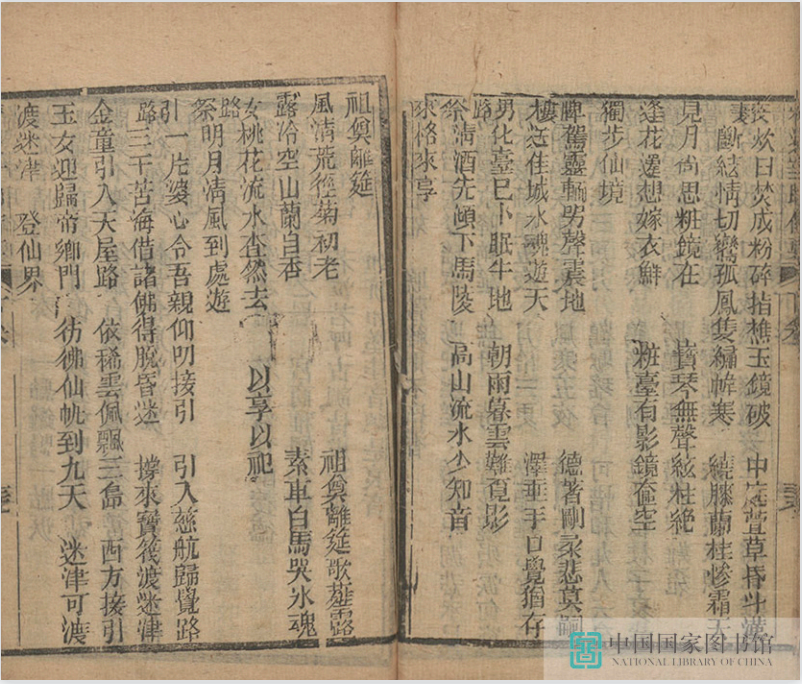 夜炊日焚成粉碎指樵玉鏡破 中庭萱草昏斗漢
妻斷絃情切鸞孤鳳隻繡幃寒 繞膝蘭桂慘霜天
見月尚思粧鏡在 寶琴無聲絃柱絶
逢花還想嫁衣鮮 粧臺有影鏡奩空
獨步仙境
牌駕靈輀男聲震地 德著剛柔悲莫罄
樓近佳城水魂遊天 澤垂手口覺猶存
男化臺已卜眠牛地 朝雨暮雲難覓影
路
祭清酒先傾下馬陵 高山流水少知音
來格來享
祖奠離筵 祖奠離筵歌薤露
風清荒徑菊初老 素車白馬哭氷魂
露冷空山蘭自香
女桃花流水杳然去 以享以祀
路
祭明月清風到處遊
引一片婆心令吾親仰叨接引 引入慈航歸覺路
路三千苦海借諸佛得脫昏迷 撐來寶筏渡迷津
金童引入天屋路 依稀雲佩飄三島 西方接引
玉女迎歸帝鄉門 彷彿仙帆到九天 迷津可渡
渡迷津 登仙界
中国国家图书馆
NATIONAL LIBRARY OF CHINA